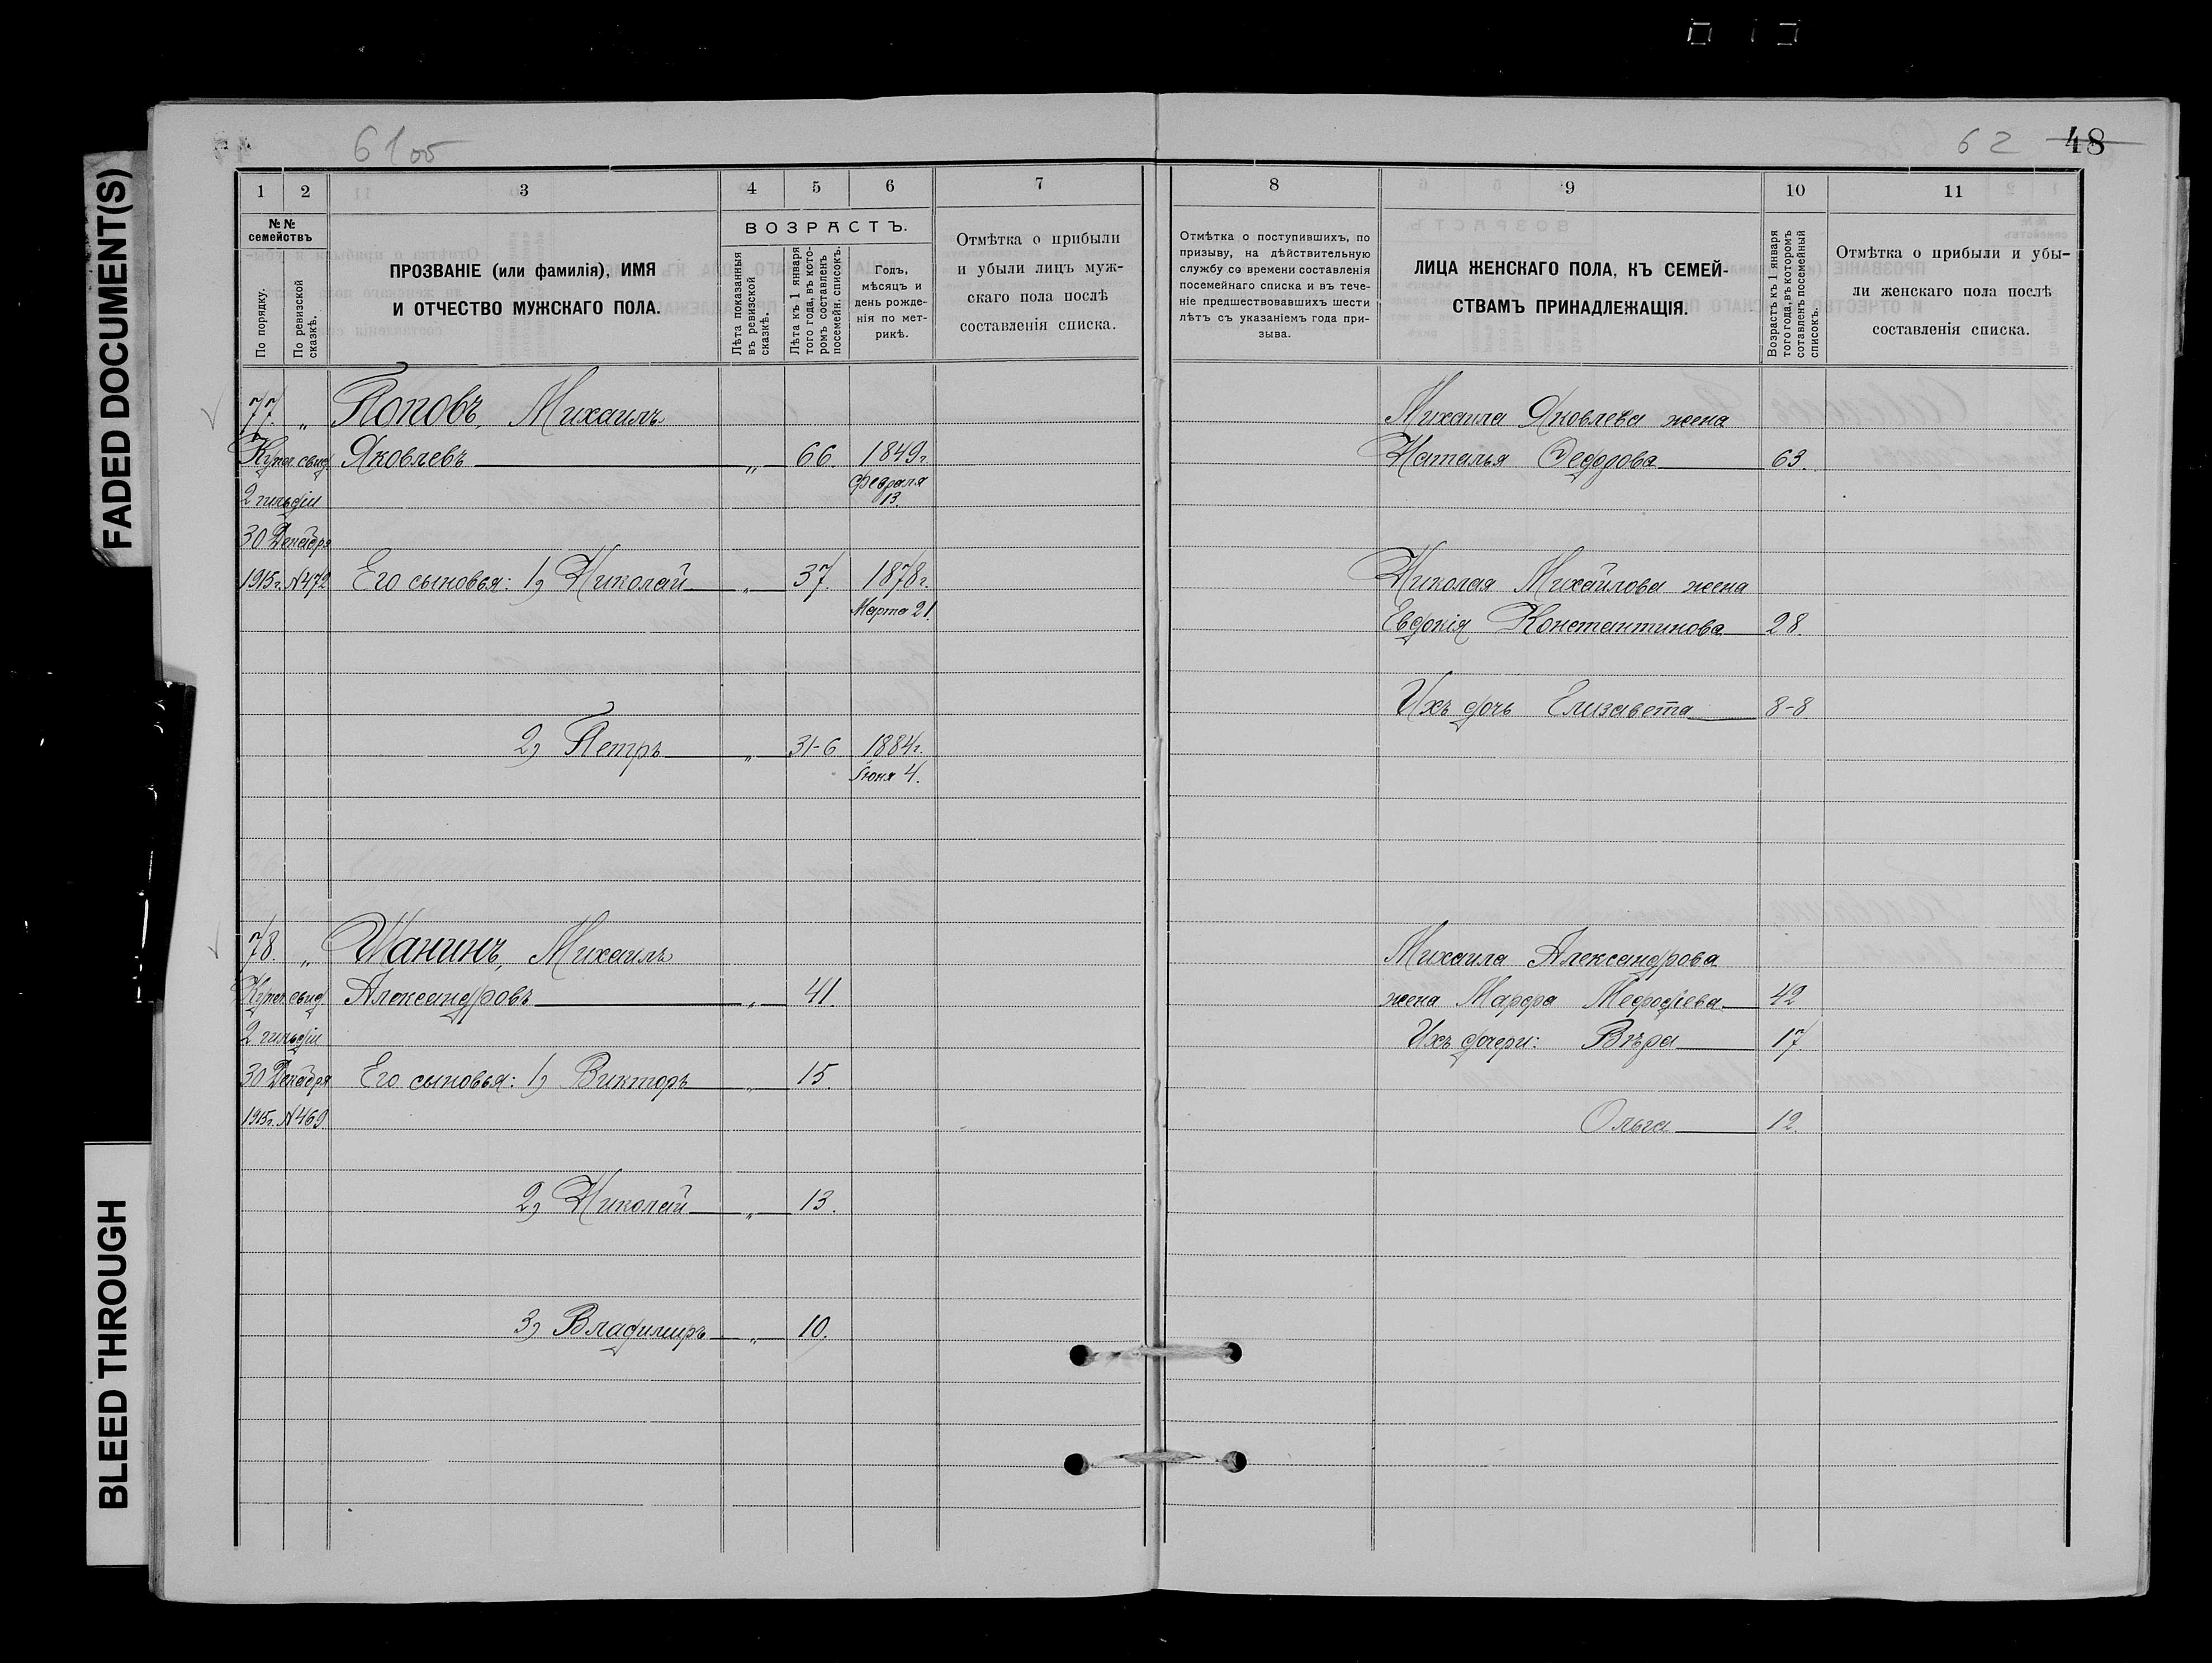 FADED DOCUMENT(S)
BLEED THROUGH
61об
1 2 3 4 5 6 7
№№ семействъ
По порядку.
По ревизской сказкѣ.
ПРОЗВАНІЕ (или фамилія), ИМЯ
И ОТЧЕСТВО МУЖСКАГО ПОЛА.
ВОЗРАСТЪ.
Лѣта показанныя въ ревизской сказкѣ.
Лѣта къ 1 января того года, въ которомъ составленъ посемейн. списокъ.
Годъ, мѣсяцъ и день рожденія по метрикѣ.
Отмѣтка о прибыли
и убыли лицъ муж-
скаго пола послѣ
составленія списка.
77. „ Поповъ, Михаилъ
Купеч. свид. Яковлевъ „ 66. 1849г.
2 гильдіи Февраля 13.
30 Декабря
1915г. №472 Его сыновья: 1) Николай „ 37. 1878г.
Марта 21.
2) Петръ „ 31-6 1884г.
Іюня 4.
78. „ Шанинъ, Михаилъ
Купеч. свид. Александровъ „ 41.
2 гильдіи
30 Декабря Его сыновья: 1) Викторъ „ 15.
1915г. №469
2) Николай „ 13.
3) Владимиръ „ 10.
62 48
8 9 10 11
Отмѣтка о поступившихъ, по
призыву, на дѣйствительную
службу со времени составленія
посемейнаго списка и въ тече-
ніе предшествовавшихъ шести
лѣтъ съ указаніемъ года при-
зыва.
ЛИЦА ЖЕНСКАГО ПОЛА, КЪ СЕМЕЙ-
СТВАМЪ ПРИНАДЛЕЖАЩІЯ.
Возрастъ къ 1 января
того года, въ которомъ
сотавленъ посемейный
списокъ.
Отмѣтка о прибыли и убы-
ли женскаго пола послѣ
составленія списка.
Михаила Яковлева жена
Наталья Ѳедорова 63.
Николая Михайлова жена
Евдокія Константинова 28.
Ихъ дочь Елизавета 8-8
Михаила Александрова
жена Марфа Мефодіева 42
Ихъ дочери: Вѣра 17
Ольга 12.